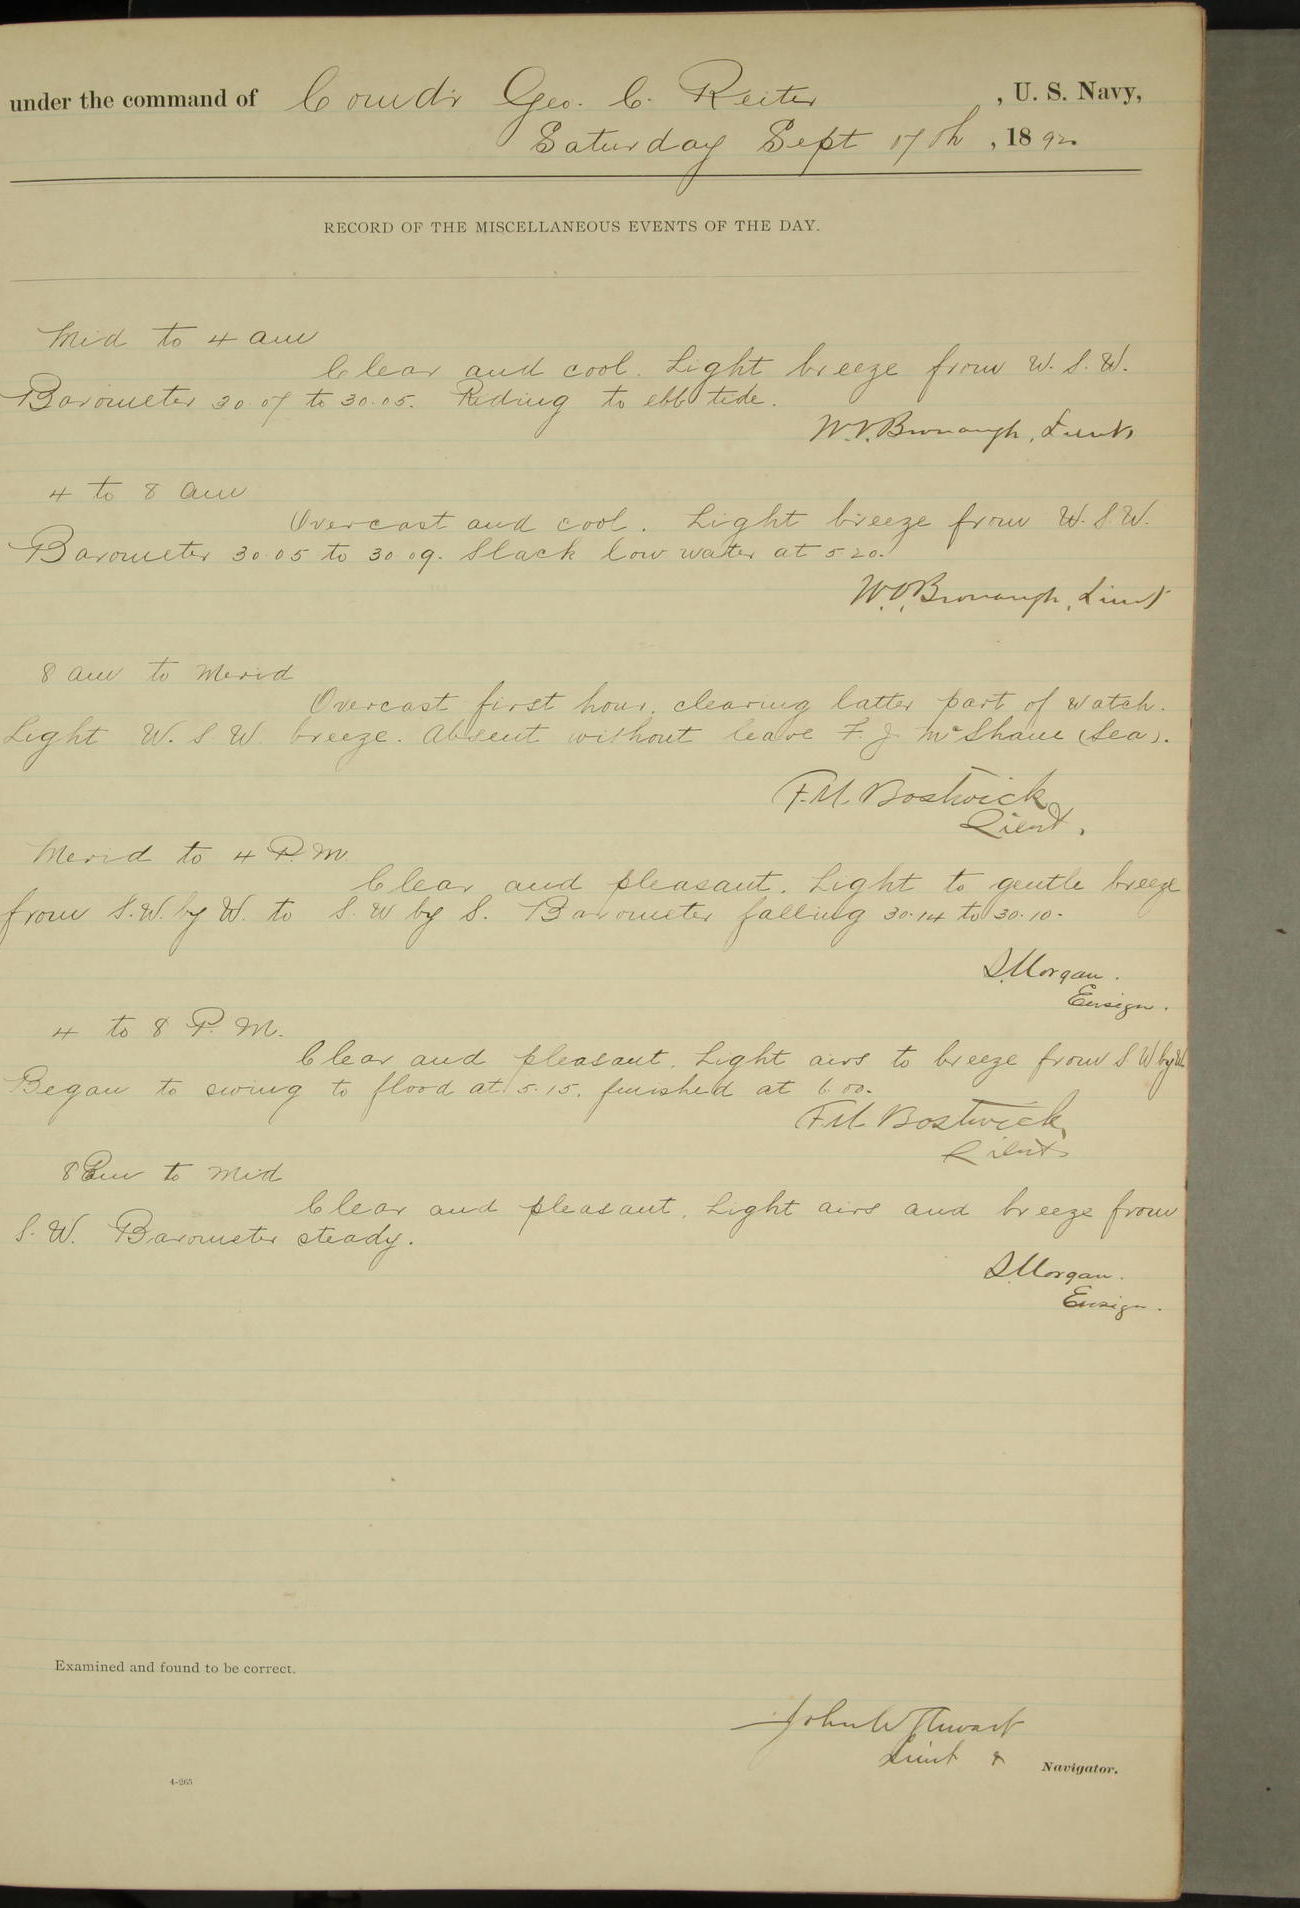 under the command of Comdr Geo. C. Reiter , U. S. Navy,
Saturday Sept 17th , 1892
RECORD OF THE MISCELLANEOUS EVENTS OF THE DAY.
Mid to 4 am
Clear and cool. Light breeze from W. S. W.
Barometer 30.07 to 30.05. Riding to ebb tide.
W.V. Bronaugh, Lieut
4 to 8 am
Overcast and cool. Light breeze from W. S. W.
Barometer 30.05 to 30.09. Slack low water at 5 20.
W.V. Bronaugh, Lieut
8 am to Merid
Overcast first hour, clearing latter part of watch.
Light W. S. W. breeze. Absent without leave F. J. McShane (Sea).
F.M. Bostwick
Lieut.
Merid to 4 P.M.
Clear and pleasant. Light to gentle breeze
from S.W. by W. to S. W by S. Barometer falling 30.14 to 30.10.
S. Morgan.
Ensign.
4 to 8 P. M.
Clear and pleasant. Light airs to breeze from S W by W
Began to swing to flood at 5.15, finished at 6.00.
F.M. Bostwick
Lieut
8 Pm to Mid
Clear and pleasant. Light airs and breeze from
S. W. Barometer steady.
S. Morgan.
Ensign.
Examined and found to be correct.
John W Stewart
Lieut & Navigator.
4-265